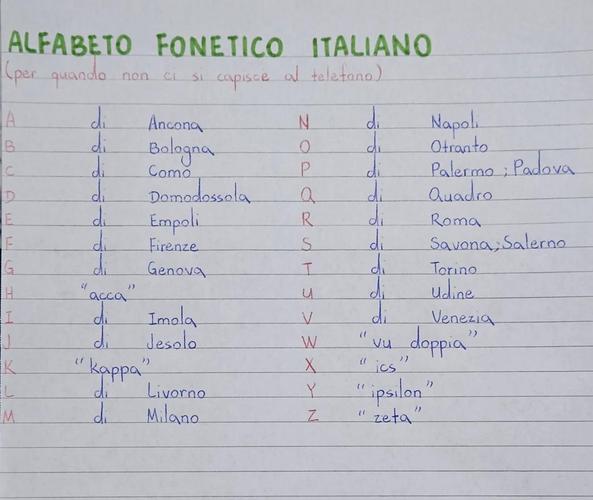 ALFABETO FONETICO ITALIANO
(per quando non ci si capisce al telefono)
A di Ancona N di Napoli
B di Bologna O di Otranto
C di Como P di Palermo; Padova
D di Domodossola Q di Quadro
E di Empoli R di Roma
F di Firenze S di Savona; Salerno
G di Genova T di Torino
H "acca" U di Udine
I di Imola V di Venezia
J di Jesolo W "vu doppia"
K "kappa" X "ics"
L di Livorno Y "ipsilon"
M di Milano Z "zeta"